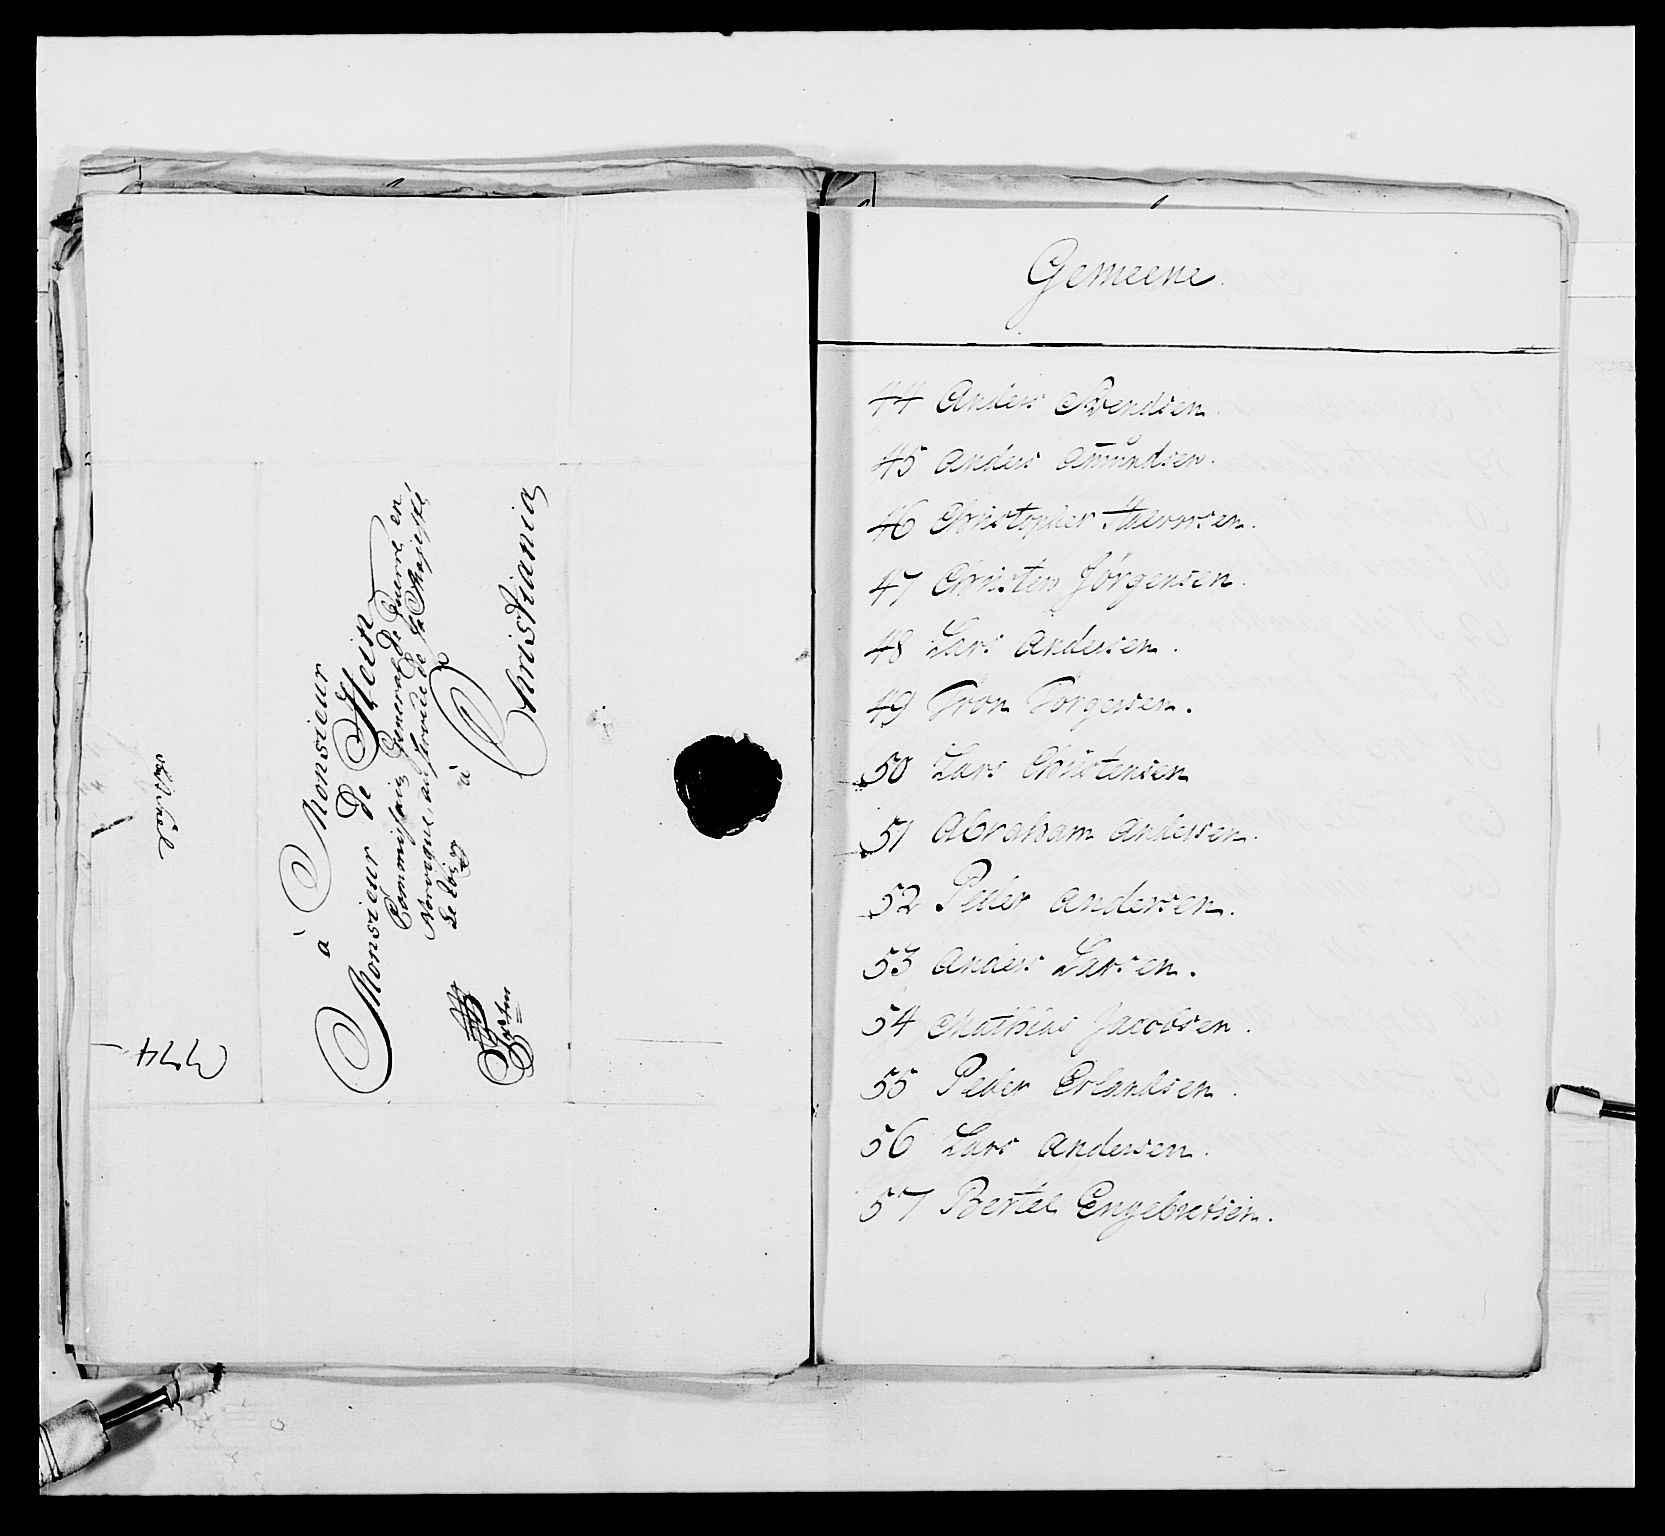 à Monsieur
Monsieur de Stein
Commissair General de Guerre en
Norvegue, au service de Sa Majesté,
à
Christiania
774
Gemeene.
44 Anders Svendsen.
45 Anders Amundsen.
46 Christopher Halvorsen.
47 Christen Jörgensen.
48 Lars Andersen.
49 Tron Torgersen.
50 Lars Christensen
51 Abraham Andersen.
52 Peder Andersen.
53 Anders Larsen.
54 Mathias Jacobsen.
55 Peder Erlandsen.
56 Lars Andersen.
57 Bertel Engebretsen.